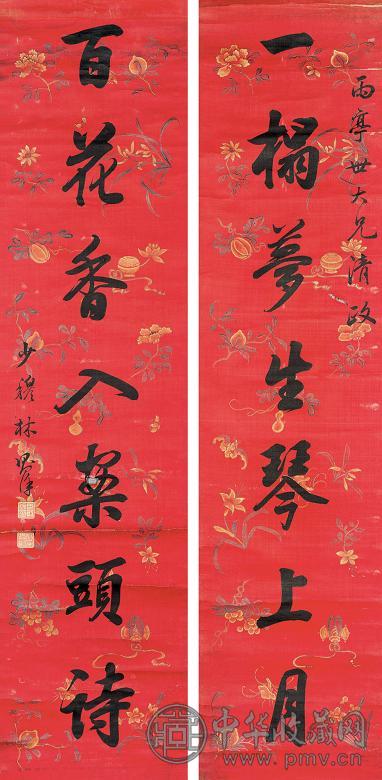 雨亭世大兄清政
一榻夢生琴上月
百花香入案頭詩
少穆林則徐
中华收藏网
www.pmv.cn